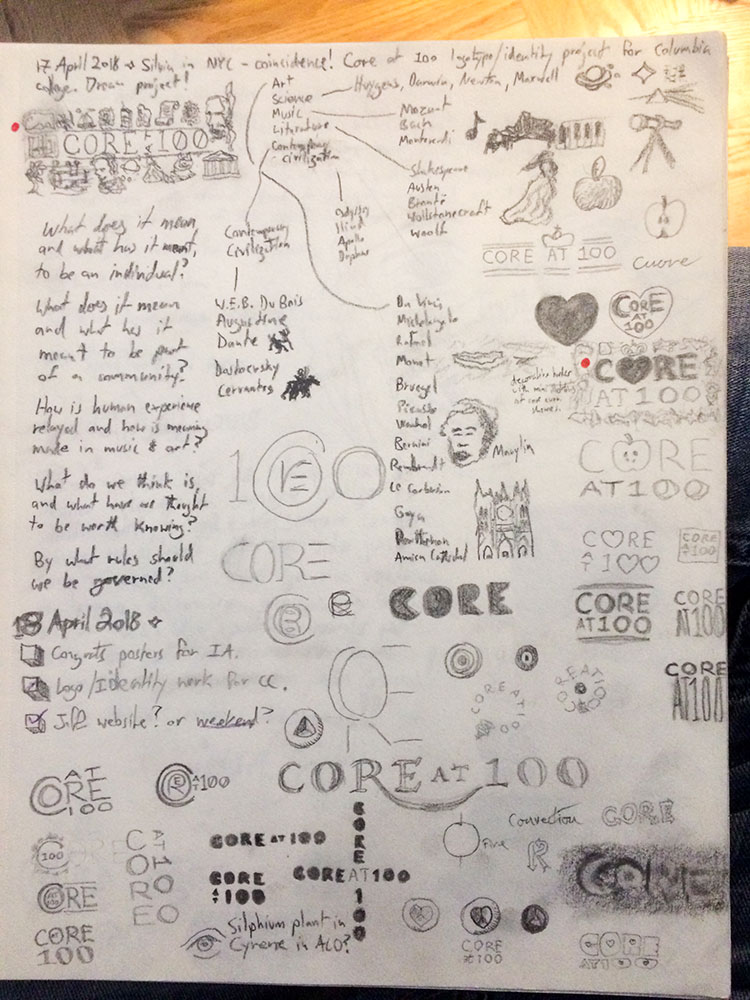 17 April 2018 → Silvia in NYC - coincidence! Core at 100 logotype/identity project for Columbia
college. Dream project!
Art
Science
Music
Literature
Contemporary
civilization
Huygens, Darwin, Newton, Maxwell
Mozart
Bach
Monteverdi
Shakespeare
Austen
Brontë
Wollstonecraft
Woolf
Odyssey
Iliad
Apollo
Daphne
CORE AT 100
CORE AT 100
Cuore
What does it mean
and what has it meant,
to be an individual?
What does it mean
and what has it
meant to be part
of a community?
How is human experience
relayed and how is meaning
made in music & art?
What do we think is,
and what have we thought
to be worth knowing?
By what rules should
we be governed?
Contemporary
Civilization
W.E.B. Du Bois
Augustine
Dante
Dostoevsky
Cervantes
Da Vinci
Michelangelo
Rafael
Monet
Bruegel
Picasso
Warhol
Bernini
Rembrandt
Le Corbusier
Goya
Parthenon
Amiens Cathedral
Marylin
CORE
AT
100
CORE
AT 100
CORE
AT 100
CORE
AT 100
CORE
AT 100
CORE
AT 100
CORE
AT 100
CORE
AT 100
100
CORE
CORE
CORE AT 100
CORE AT 100
18 April 2018
Congrats posters for IA.
Logo/Identity work for CC.
Jiff website? or weekend?
CORE AT 100
CORE AT 100
AT 100
100
CORE
AT 100
CORE
CORE
100
CORE AT 100
CORE
AT 100
CORE AT 100
CORE AT 100
Convection
Fire
R
CORE
CORE
CORE
AT 100
CORE
AT 100
Silphium plant in
Cyrene in